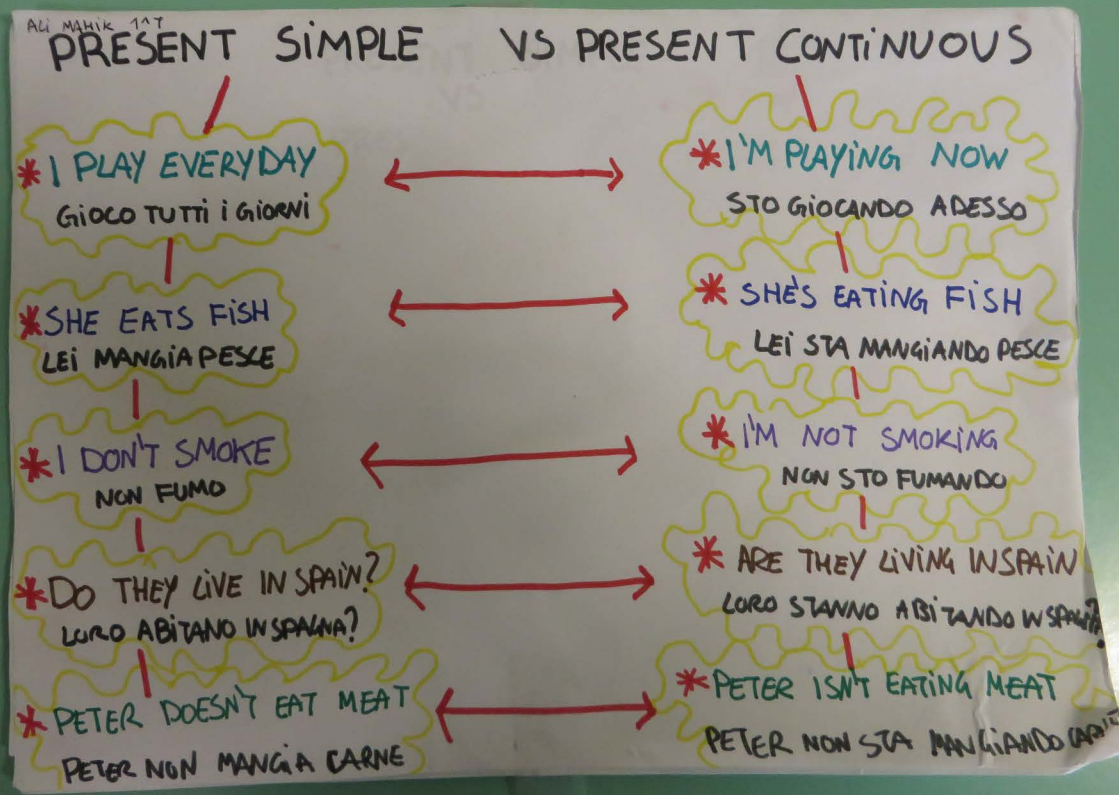 ALi MAHiK 1^T
PRESENT SiMPLE VS PRESENT CONTiNUOUS
* I PLAY EVERYDAY
GiOCO TUTTi i GiORNi
* SHE EATS FiSH
LEi MANGiA PESCE
* I DON'T SMOKE
NON FUMO
* DO THEY LiVE IN SPAiN?
LORO ABiTANO IN SPAGNA?
* PETER DOESN'T EAT MEAT
PETER NON MANGiA CARNE
* I'M PLAYiNG NOW
STO GiOCANDO ADESSO
* SHE'S EATING FiSH
LEi STA MANGiANDO PESCE
* I'M NOT SMOKiNG
NON STO FUMANDO
* ARE THEY LiViNG IN SPAiN
LORO STANNO ABiTANDO IN SPAGNA?
* PETER ISN'T EATiNG MEAT
PETER NON STA MANGiANDO CARNE